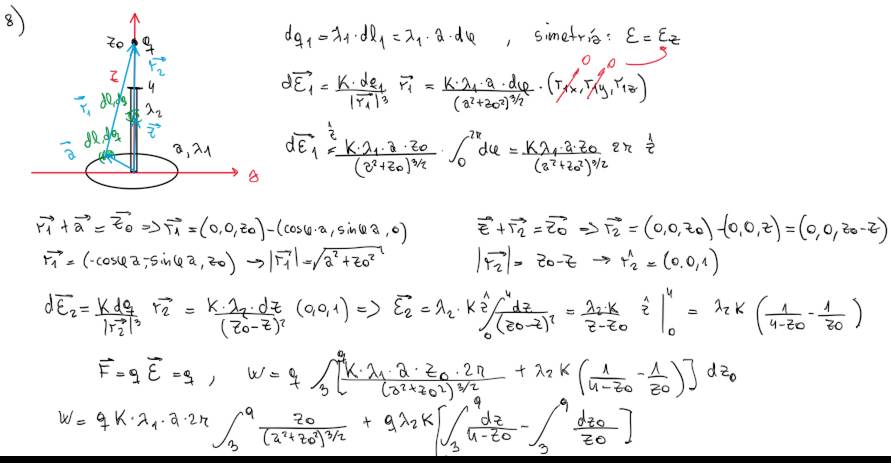 8)
z₀ q
r₂
z
4
r₁ dl, dq
λ₂
z
dl, dq
a
a, λ₁
dq₁ = λ₁·dl₁ = λ₁·a·dφ , simetría: E = E_z
dE₁ = K·dq₁/|r₁|³ r₁ = K·λ₁·a·dφ/(a²+z₀²)^3/2 · (r₁x, r₁y, r₁z) 0 0
dE₁ = ẑ K·λ₁·a·z₀/(a²+z₀)^3/2 · ∫₀^2π dφ = Kλ₁·a·z₀/(a²+z₀²)^3/2 2π ẑ
r₁ + a = z₀ => r₁ = (0,0,z₀) - (cosφ·a, sinφ a, 0)
r₁ = (-cosφ a, -sinφ a, z₀) → |r₁| = √(a²+z₀²)
z + r₂ = z₀ => r₂ = (0,0,z₀) - (0,0,z) = (0,0,z₀-z)
|r₂| = z₀-z → r̂₂ = (0,0,1)
dE₂ = K dq/|r₂|³ r₂ = K·λ₂·dz/(z₀-z)² (0,0,1) => E₂ = λ₂·K ẑ ∫₀^4 dz/(z₀-z)² = λ₂·K/z-z₀ ẑ |₀^4 = λ₂ K (1/4-z₀ - 1/z₀)
F = q E = q , W = q ∫₃^9 [K·λ₁·a·z₀·2π/(a²+z₀²)^3/2 + λ₂ K (1/4-z₀ - 1/z₀)] dz₀
W = q K·λ₁·a·2π ∫₃^9 z₀/(a²+z₀²)^3/2 + qλ₂K [∫₃^9 dz/4-z₀ - ∫₃^9 dz₀/z₀]